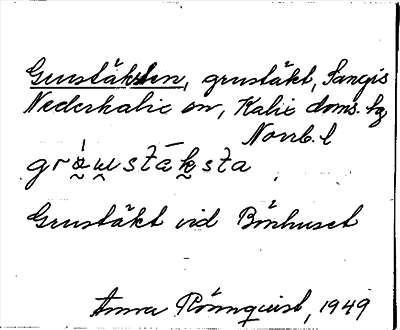 Grustäkten, grustäkt, Sangis
Nederkalix sn, Kalix doms. hg
Norrb. l
Grustäkt vid Bönhuset
Anna Rönnquist, 1949